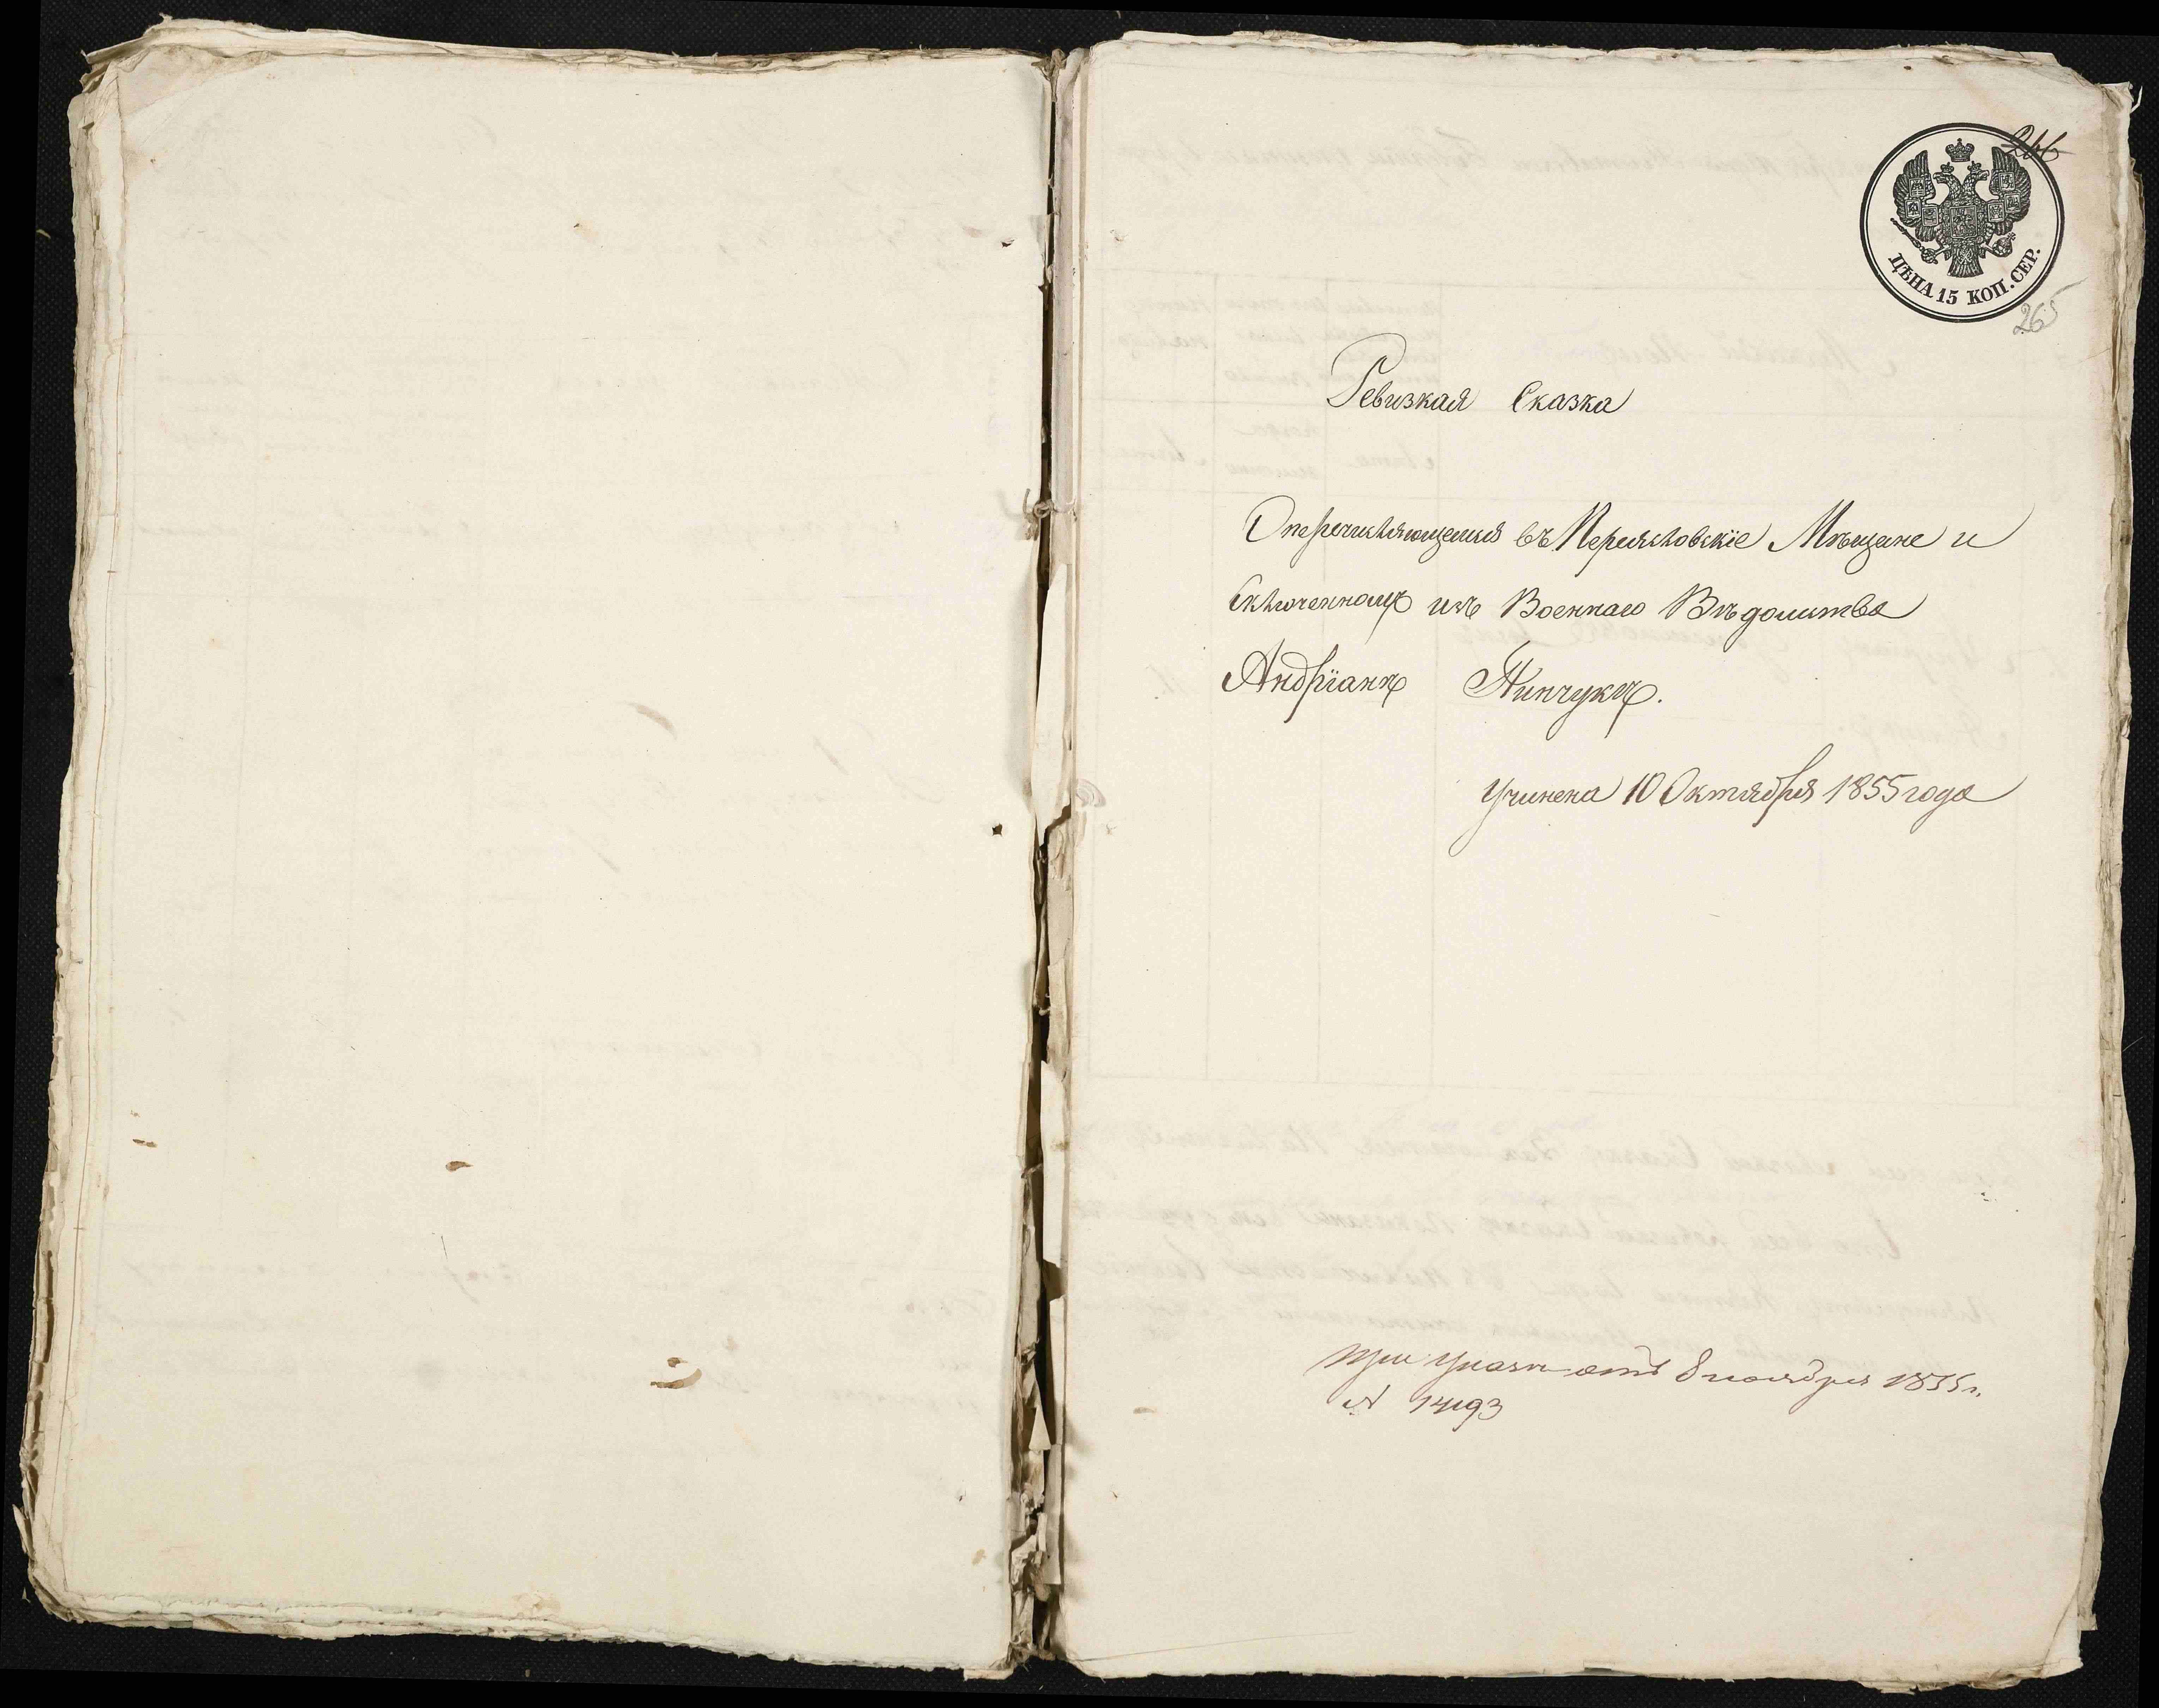 266
ЦѢНА 15 КОП. СЕР.
265
Ревизкая Сказка
О перечисляющемся въ Переясловскіе Мѣщане и
Сключенномъ изъ Военнаго Вѣдомства
Андріанъ Пинчукъ.
Учинена 10 Октября 1855 года
При Указѣ отъ 8 ноября 1855 г.
№